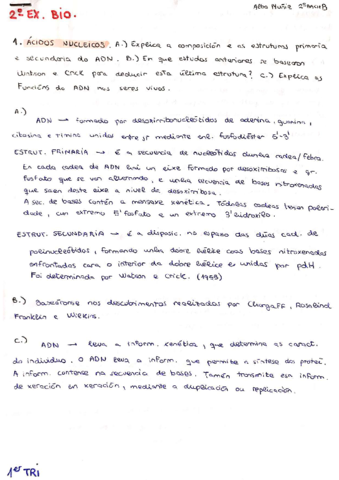 Alba Muñiz 2ºBACHB
2º EX. BIO.
1. ÁCIDOS NUCLEICOS. A.) Explica a composición e as estruturas primaria
e secundaria do ADN. B.) En que estudos anteriores se basaron
Watson e Crick para deducir esta última estrutura? C.) Explica as
Funcións do ADN nos seres vivos.
A.)
ADN → formado por desoxirribonucleótidos de adenina, guanina,
citosina e timina unidos entre si mediante enl. fosfodiéster 5'-3'
ESTRUT. PRIMARIA → é a secuencia de nucleótidos dunha cadea/febra.
En cada cadea de ADN hai un eixe formado por desoxirribosas e gr.
fosfato que se van alternando, e unha secuencia de bases nitroxenadas
que saen deste eixe a nivel da desoxirribosa.
A sec. de bases contén a mensaxe xenética. Tódalas cadeas teñen polari-
dade, cun extremo 5' fosfato e un extremo 3' hidroxilo.
ESTRUT. SECUNDARIA → é a disposic. no espazo das dúas cad. de
polinucleótidos, formando unha dobre hélice coas bases nitroxenadas
enfrontadas cara o interior da dobre hélice e unidas por pdH.
Foi determinada por Watson e Crick. (1953)
B.) Basáronse nos descubrimentos realizados por Chargaff, Rosalind
Franklin e Wilkins.
C.)
ADN → leva a inform. xenética, que determina as caract.
do individuo. O ADN leva a inform. que permite a síntese das proteí.
A inform. contense na secuencia de bases. Tamén transmite esa inform.
de xeración en xeración, mediante a duplicación ou replicación.
1er TRI